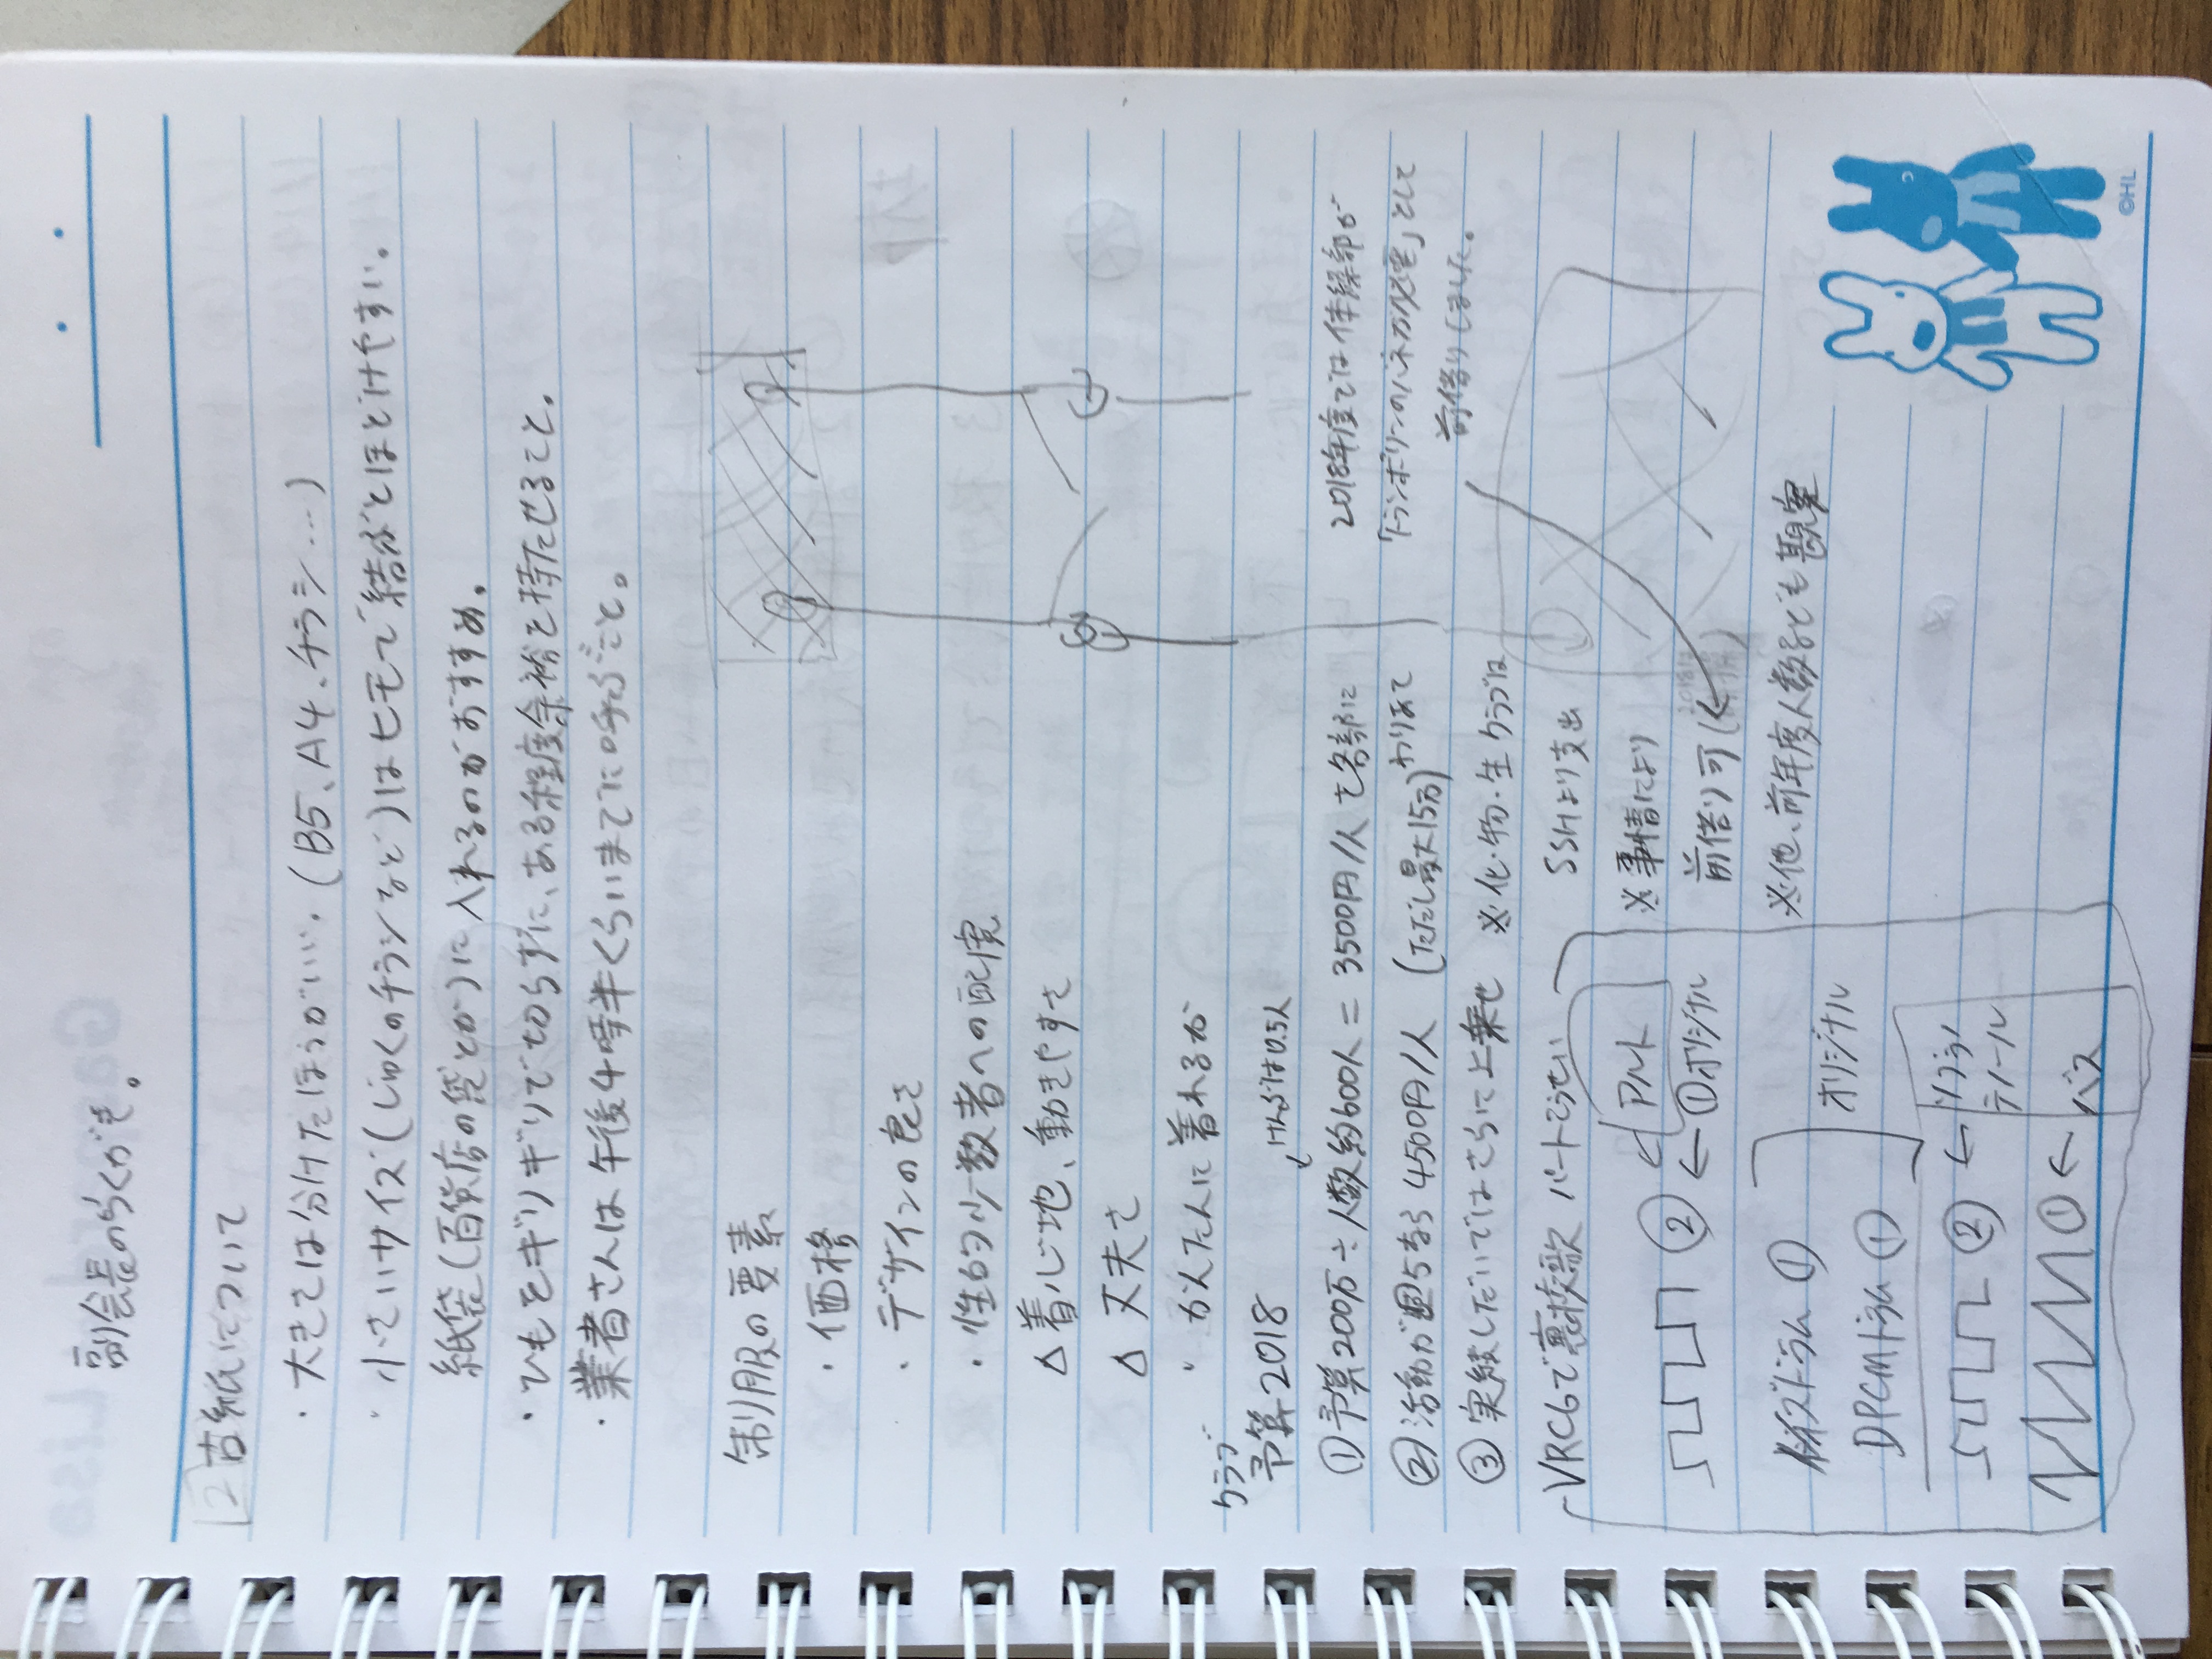 副会長のらくがき。
2 古紙について
・大きさは分けたほうがいい。(B5、A4、チラシ…)
・小さいサイズ(じゅくのチラシなど)はヒモで結ぶとほどけやすい。
紙袋(百貨店の袋とか)に入れるのがおすすめ。
・ひもをギリギリで切らずに、ある程度余裕を持たせること。
・業者さんは午後4時半くらいまでに呼ぶこと。
制服の要素
・価格
・デザインの良さ
・性的少数者への配慮
△着心地、動きやすさ
△丈夫さ
・かんたんに着れるか
クラブ
予算2018
↓けんぶは0.5人
①予算200万÷人数約600人=3500円/人を各部に
わりあて
②活動が週5なら4500円/人 (ただし最大15万)
③実績しだいではさらに上乗せ
※化・物・生クラブは
SSHより支出
※事情により
前借り可(←)
※他、前年度人数なども勘案
2018年度では体操部が
「トランポリンのバネが必要」として
前借りしました。
VRC6で裏校歌 パートこうせい
② ← アルト
← ①オリジナル
ノイズドラム ①
DPCMドラム ①
オリジナル
② ← ソプラノ
テノール
① ← バス
©HL